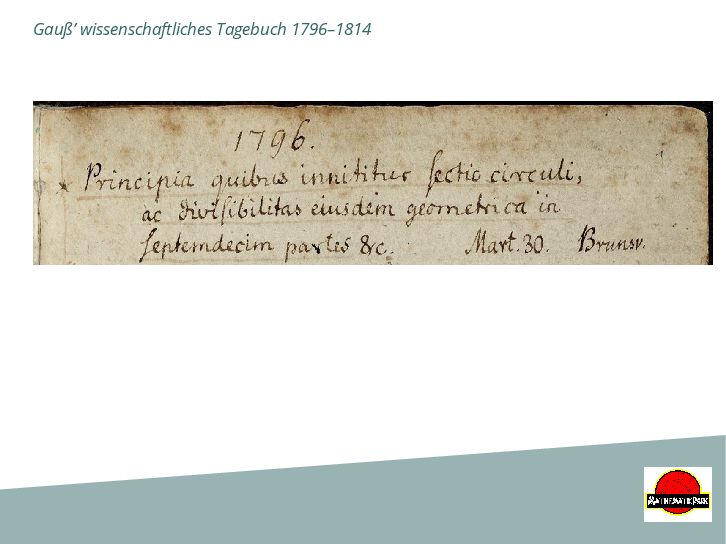 Gauß’ wissenschaftliches Tagebuch 1796–1814
1796.
Principia quibus innititur sectio circuli,
ac divisibilitas eiusdem geometrica in
septemdecim partes &c. Mart. 30. Brunsv.
MATHEMATIK PARK